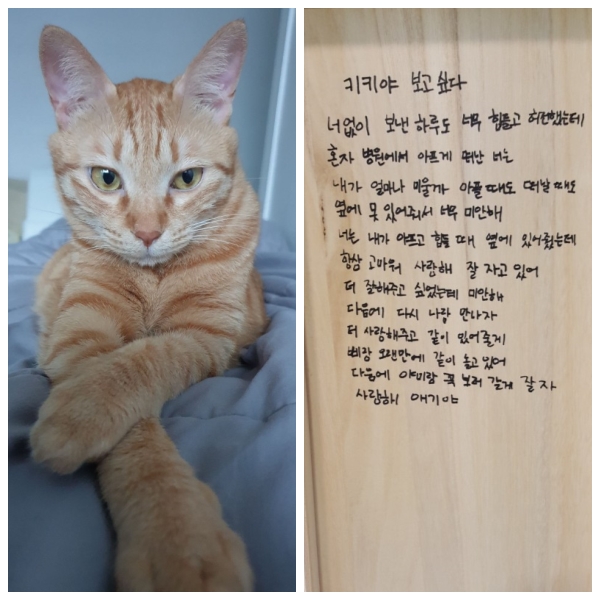 키키야 보고싶다
너없이 보낸 하루도 너무 힘들고 허전했는데
혼자 병원에서 아프게 떠난 너는
내가 얼마나 미울까 아플때도 떠날때도
옆에 못 있어줘서 너무 미안해
너는 내가 아프고 힘들때 옆에 있어줬는데
항상 고마워 사랑해 잘 자고 있어
더 잘해주고 싶었는데 미안해
다음에 다시 나랑 만나자
더 사랑해주고 같이 있어줄게
삐랑 오랜만에 같이 놀고있어
다음에 야삐랑 꼭 보러 갈게 잘자
사랑해 애기야